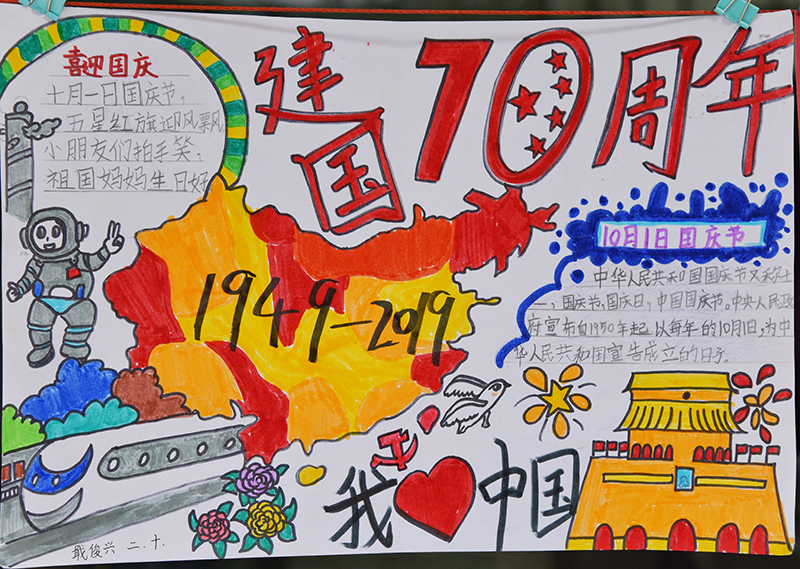 喜迎国庆
十月一日国庆节,
五星红旗迎风飘,
小朋友们拍手笑,
祖国妈妈生日好
建国70周年
10月1日国庆节
中华人民共和国国庆节又称十
一,国庆节,国庆日,中国国庆节。中央人民政
府宣布自1950年起以每年的10月1日,为中
华人民共和国宣告成立的日子。
1949-2019
我中国
俊兴 二.十.